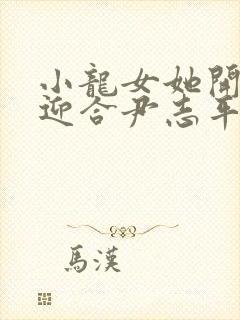 小龍女她開
迎合尹志平
馬漢